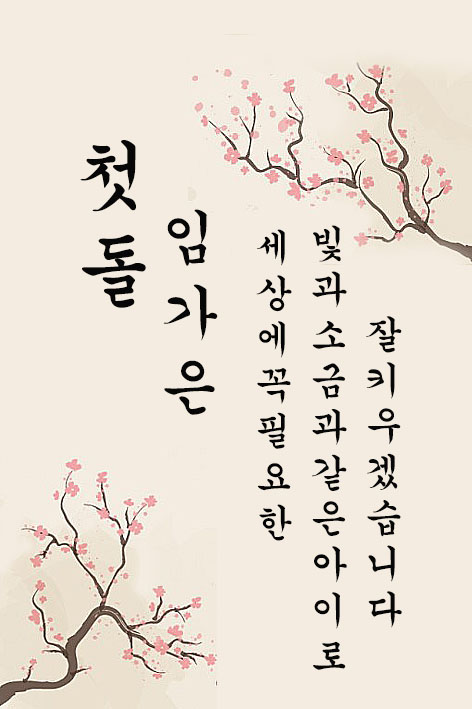 첫돌
임가은
세상에꼭필요한
빛과소금과같은아이로
잘키우겠습니다